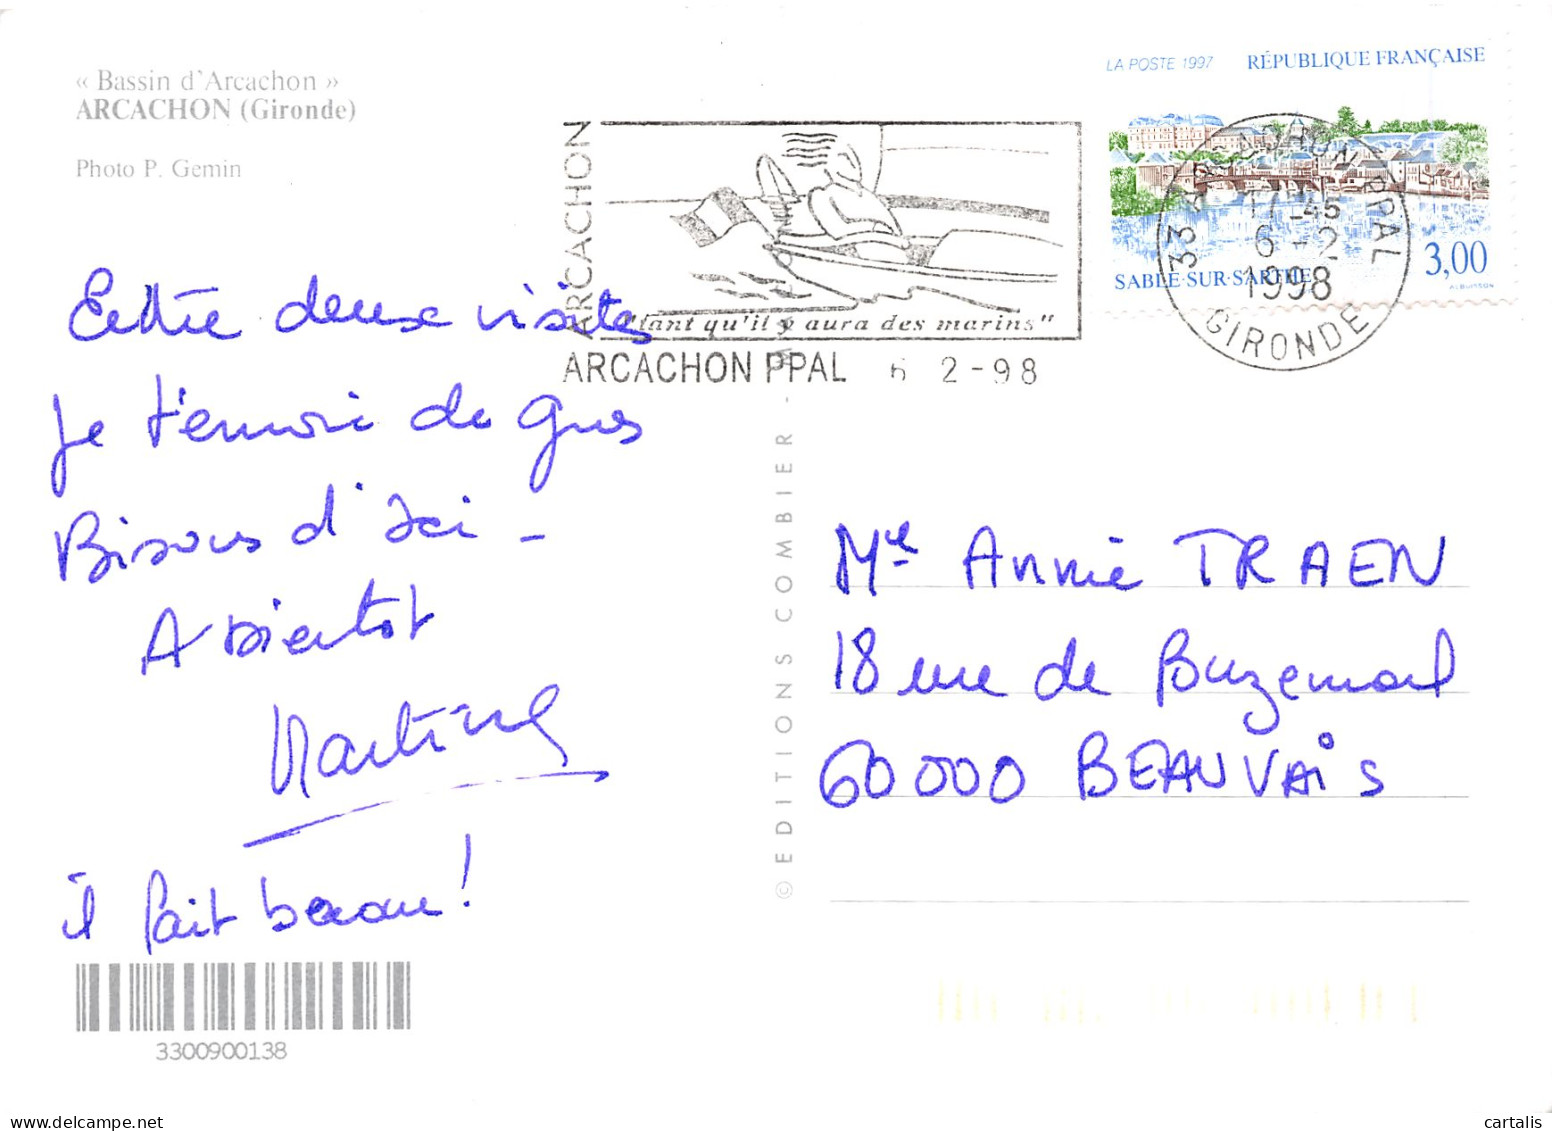 « Bassin d'Arcachon »
ARCACHON (Gironde)
Photo P. Gemin
LA POSTE 1997 RÉPUBLIQUE FRANÇAISE
3,00
SABLÉ-SUR-SARTHE
ALBUISSON
33 ARCACHON PPAL
17-45
6-2
1998
GIRONDE
ARCACHON
ARCACHON
"tant qu'il y aura des marins"
ARCACHON PPAL 6 2-98
Entre deux visites
Je t'envoie de gros
Bisous d'Ici -
A Bientot
Martine
il fait beau!
3300900138
© EDITIONS COMBIER
Mle Annie TRAEN
18 rue de Buzenval
60000 BEAUVAIS
cartalis